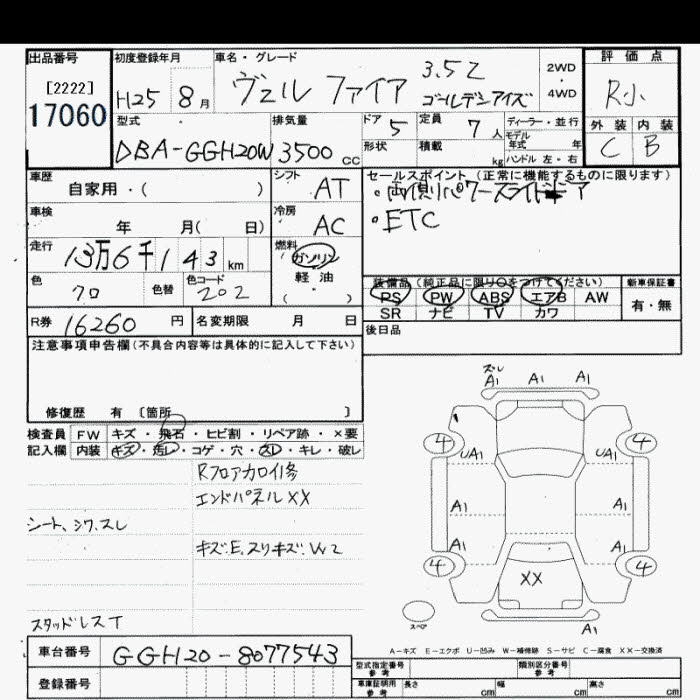 出品番号 初度登録年月 車名・グレード 評価点
[2222] H25 8月 ヴェルファイア 3.5Z ゴールデンアイズ 2WD・4WD R小
17060
型式 排気量 ドア 5 定員 7人 ディーラー・並行 外装 内装
DBA-GGH20W 3500cc 形状 積載 kg モデル年式 年 C B
ハンドル 左・右
車歴 シフト セールスポイント (正常に機能するものに限ります)
自家用・( ) AT ・両側パワースライドドア
車検 冷房 ・ETC
年 月( 日) AC
走行 燃料
13万6千143km ガソリン
色 色替 色コード 軽油 装備品(純正品に限り○をつけてください) 新車保証書
クロ 202 ( ) PS PW ABS エアB AW 有・無
SR ナビ TV カワ
R券 16260円 名変期限 月 日 後日品
注意事項申告欄(不具合内容等は具体的に記入して下さい)
修復歴 有 〔箇所 〕
検査員 FW キズ・飛石・ヒビ割・リペア跡・×要
記入欄 内装 キズ・汚レ・コゲ・穴・スレ・キレ・破レ
Rフロアカロイ修
エンドパネルXX
シート、シワ、スレ
キズ.E.スリキズ.W2
スタッドレスT
スレ
A1 A1 A1
4 4
UA1 UA1
A1 A1
A1 A1
4 4
XX
スペア A1
A-キズ E-エクボ U-凹み W-補修跡 S-サビ C-腐食 XX-交換済
車台番号 GGH20-8077543
登録番号
型式指定番号 参考 類別区分番号 参考
車庫証明用 参考 長さ cm 幅 cm 高さ cm